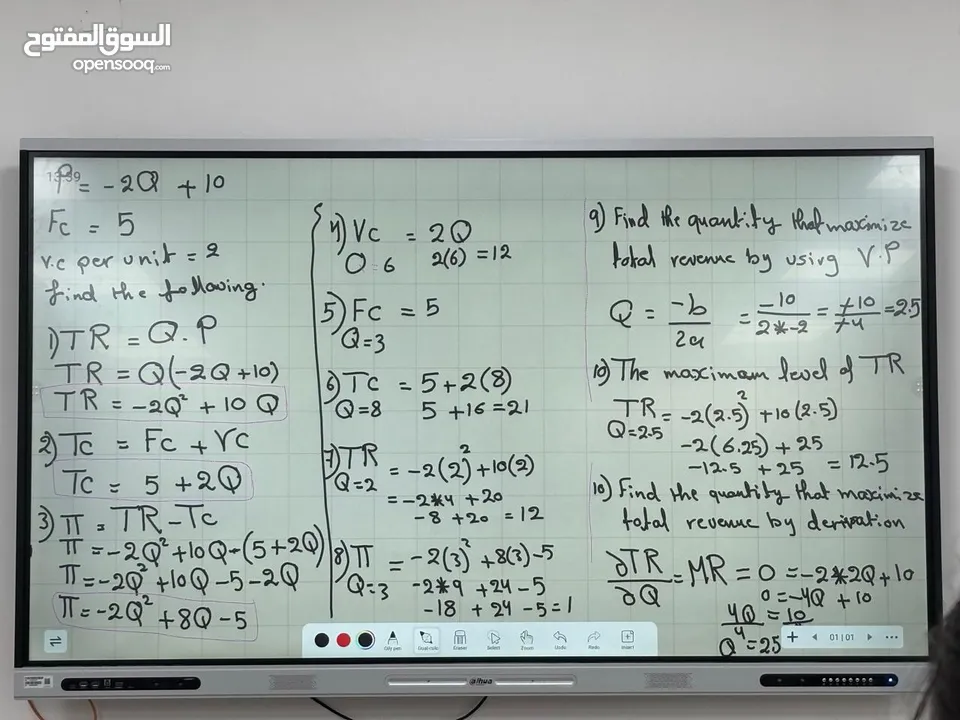 السوق المفتوح
opensooq.com
13:39
P = -2Q + 10
Fc = 5
v.c per unit = 2
find the following.
1) TR = Q.P
TR = Q(-2Q+10)
TR = -2Q² + 10 Q
2) Tc = Fc + Vc
Tc = 5 + 2Q
3) π = TR - Tc
π = -2Q² + 10Q - (5 + 2Q)
π = -2Q² + 10Q - 5 - 2Q
π = -2Q² + 8Q - 5
4) Vc = 2Q
Q = 6 2(6) = 12
5) Fc = 5
Q = 3
6) Tc = 5 + 2(8)
Q = 8 5 + 16 = 21
7) TR = -2(2)² + 10(2)
Q = 2
= -2*4 + 20
-8 + 20 = 12
8) π = -2(3)² + 8(3) - 5
Q = 3 -2*9 + 24 - 5
-18 + 24 - 5 = 1
9) Find the quantity that maximize
total revenue by using V.P
Q = -b/2a = -10/2*-2 = -10/-4 = 2.5
10) The maximam level of TR
TR = -2(2.5)² + 10(2.5)
Q = 2.5
-2(6.25) + 25
-12.5 + 25 = 12.5
10) Find the quantity that maximize
total revenue by derivation
∂TR/∂Q = MR = 0 = -2*2Q + 10
0 = -4Q + 10
4Q/4 = 10
Q = 25
Select
Zoom
Undo
Redo
Insert
Eraser
01|01
alhua